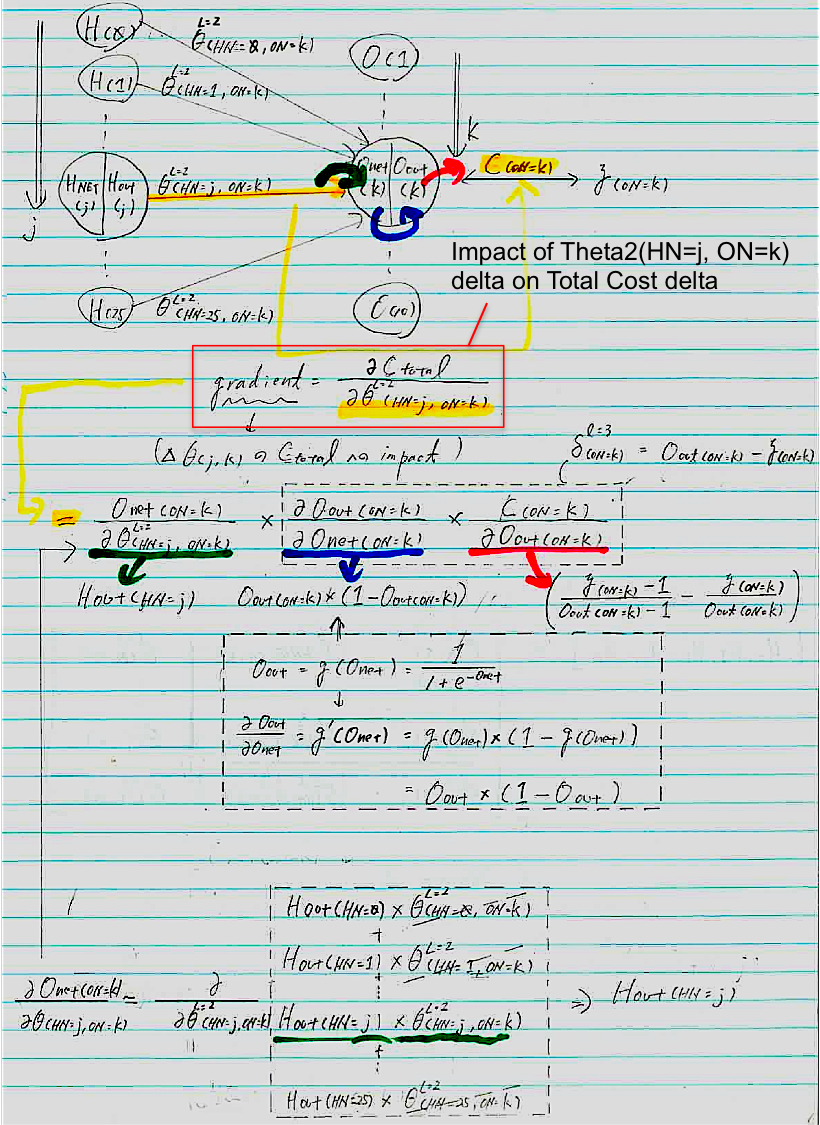 H(0)
θ^{L=2}(HN=0, ON=k)
O(1)
H(1)
θ^{L=2}(HN=1, ON=k)
k
HNET (j) | Hout (j)
θ^{L=2}(HN=j, ON=k)
Onet (k) | Oout (k)
C(ON=k)
y(ON=k)
j
Impact of Theta2(HN=j, ON=k)
delta on Total Cost delta
H(25
θ^{L=2}(HN=25, ON=k)
gradient = ∂C total / ∂θ^{L=2}(HN=j, ON=k)
(Δ θ(j,k) の Ctotal への impact)
δ^{l=3}(ON=k) = Oout(ON=k) - y(ON=k)
= Onet(ON=k) / ∂θ^{L=2}(HN=j, ON=k) × ∂Oout(ON=k) / ∂Onet(ON=k) × C(ON=k) / ∂Oout(ON=k)
Hout(HN=j)
Oout(ON=k) × (1-Oout(ON=k))
( y(ON=k)-1 / Oout(ON=k)-1 - y(ON=k) / Oout(ON=k) )
Oout = g(Onet) = 1 / 1+e^{-Onet}
∂Oout / ∂Onet = g'(Onet) = g(Onet)×(1-g(Onet))
= Oout × (1-Oout)
Hout(HN=0) × θ^{L=2}(HN=0, ON=k)
+
Hout(HN=1) × θ^{L=2}(HN=1, ON=k)
+
∂Onet(ON=k) / ∂θ(HN=j, ON=k) = ∂ / ∂θ^{L=2}(HN=j, ON=k) Hout(HN=j) × θ^{L=2}(HN=j, ON=k) ⇒ Hout(HN=j)
+
Hout(HN=25) × θ^{L=2}(HN=25, ON=k)